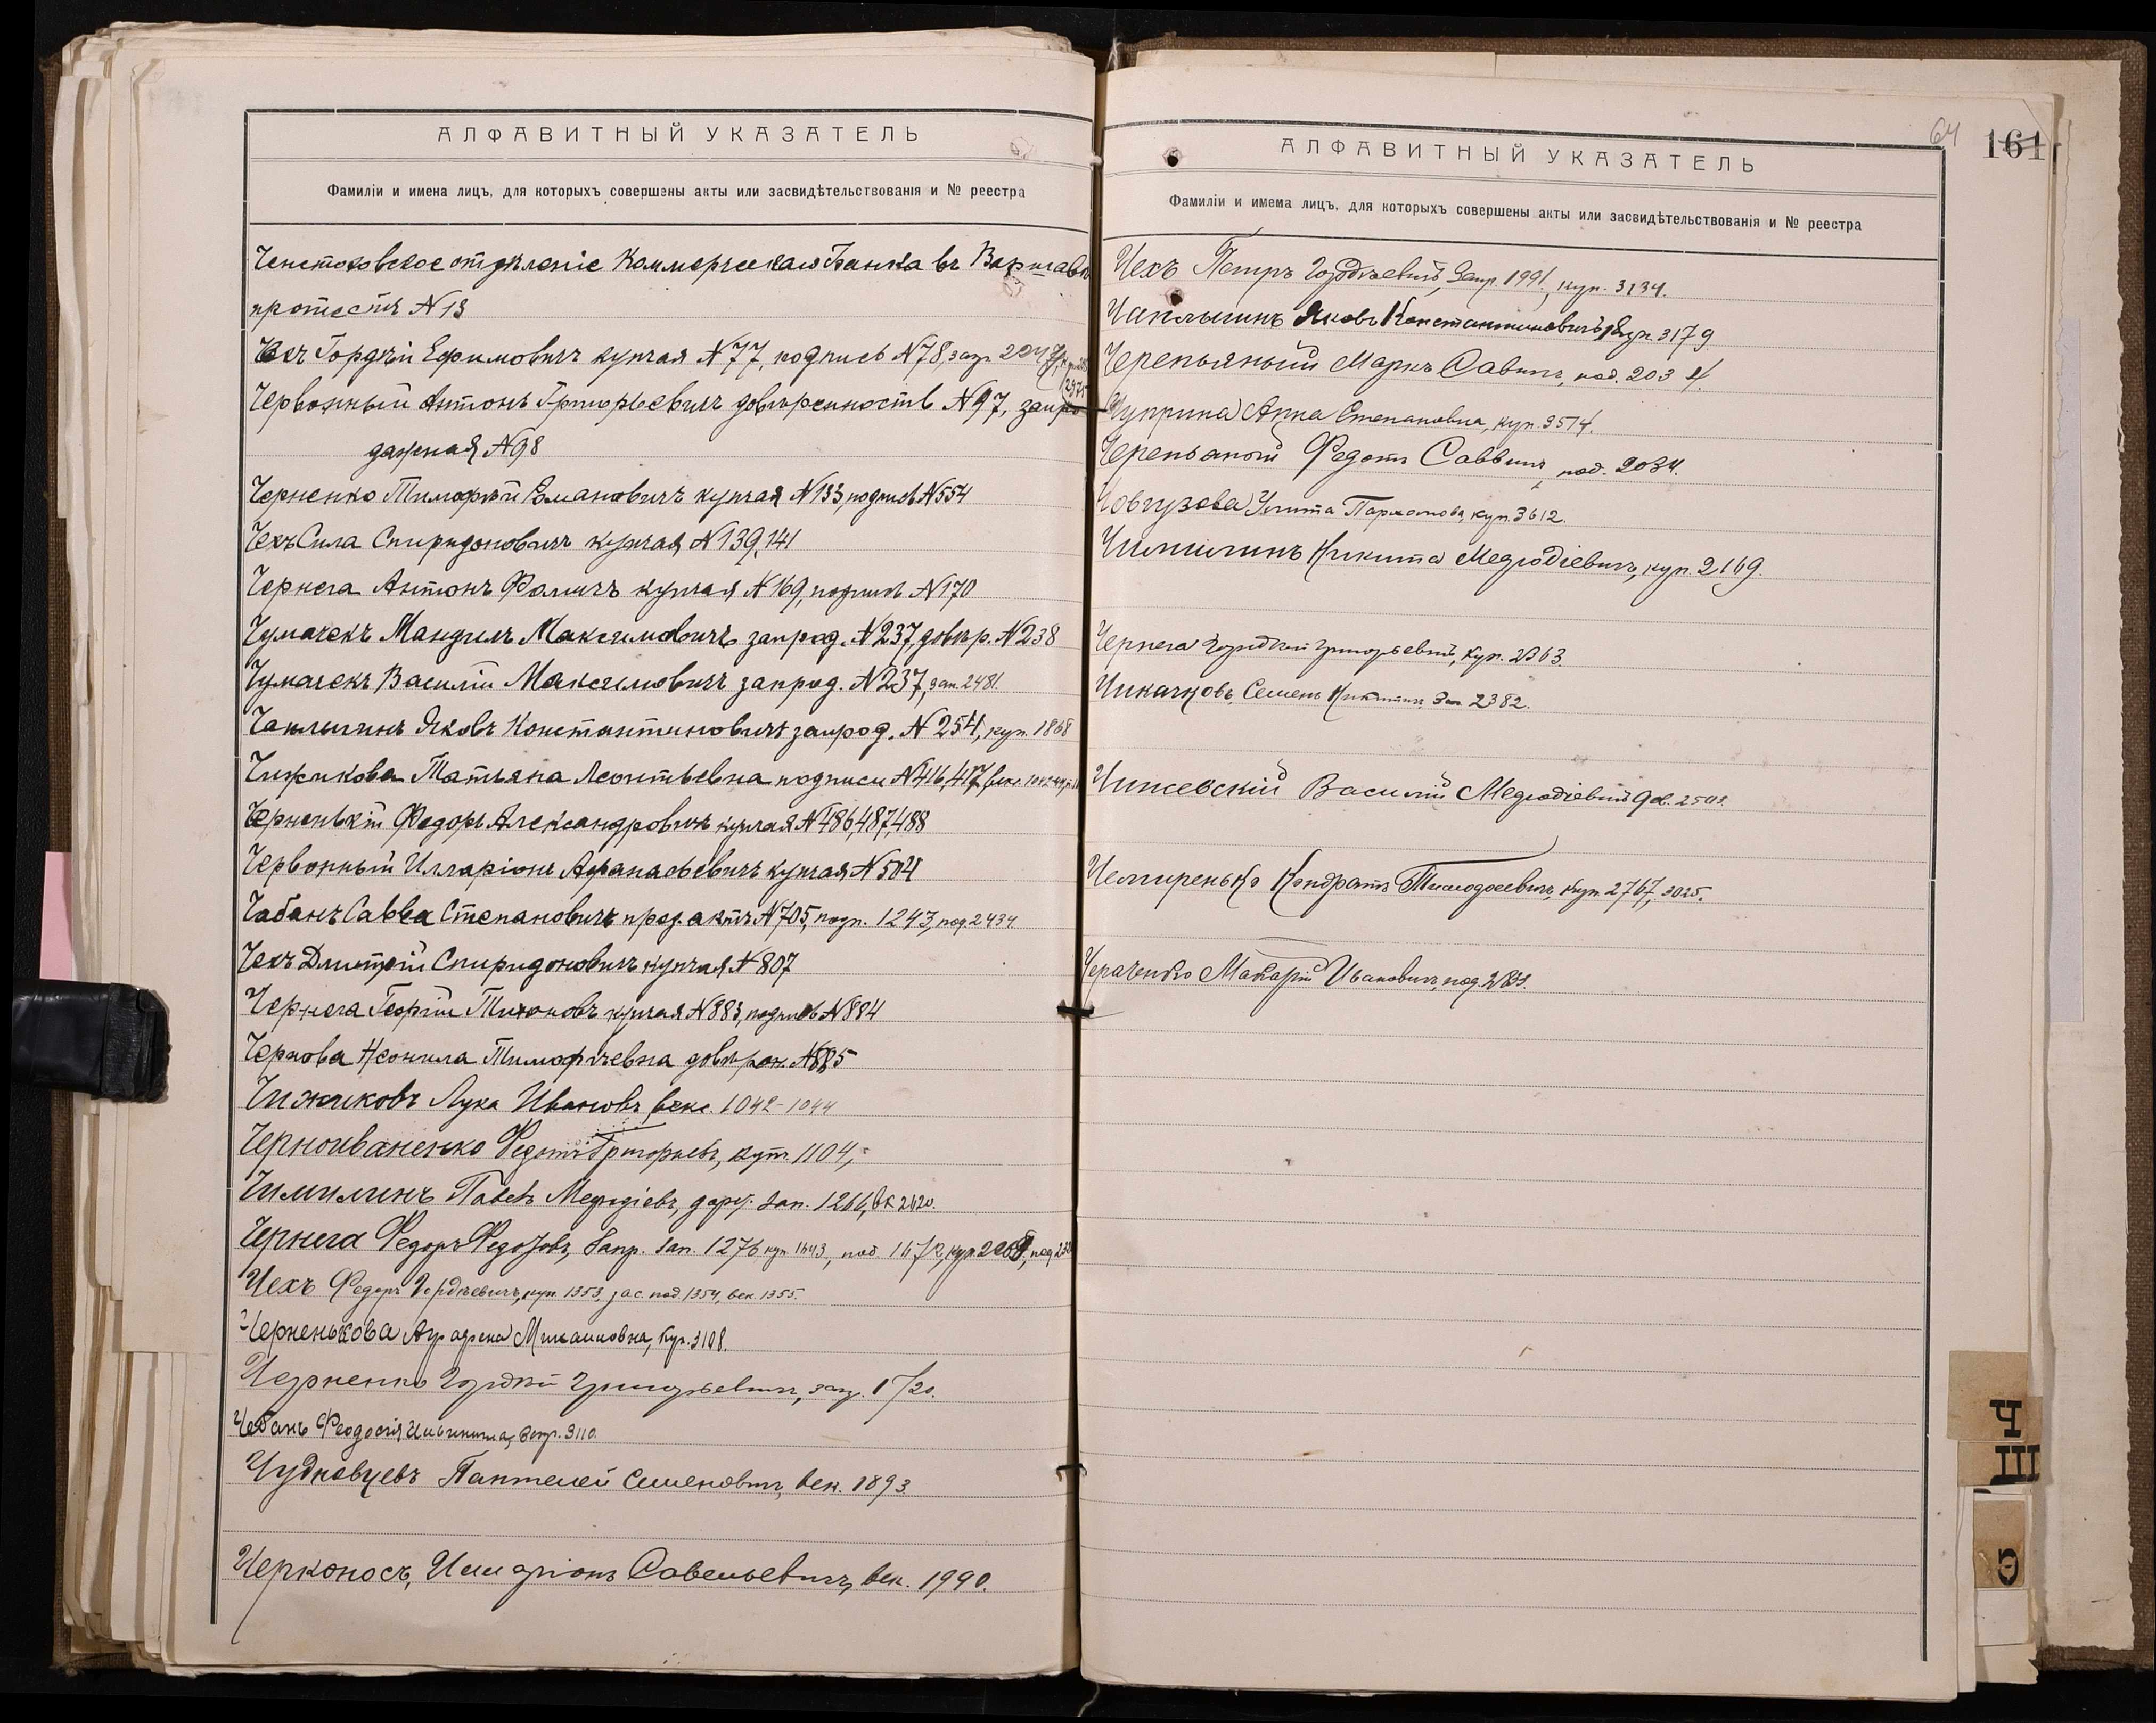 АЛФАВИТНЫЙ УКАЗАТЕЛЬ
Фамиліи и имена лицъ, для которыхъ совершены акты или засвидѣтельствованія и № реестра
Ченстоховское отдѣленіе Коммерческаго Банка въ Варшавѣ
протестъ N 13
Чехъ Гордѣй Ефимовичъ купчая N 77, подпись N 78, запр.
Червонный Антонъ Григорьевичъ довѣренность N 97, запро
дажная N 98
Черненко Тимофѣй Романовичъ купчая N 133, подпись N 554
Чехъ Сила Спиридоновичъ купчая N 139, 141
Чернега Антонъ Фомичъ купчая N 169, подпись N 170
Чумачекъ Мануилъ Максимовичъ запрод. N 237, довѣр. N 238
Чумачекъ Василій Максимовичъ запрод. N 237, зап. 2481.
Чаплыгинъ Яковъ Константиновичъ запрод. N 254, куп. 1868
Чижикова Татьяна Леонтьевна подписи N 416, 417, векс.
Черненькій Федоръ Александровичъ купчая N 486, 487, 488
Червонный Илларіонъ Афанасьевичъ купчая N 504
Чабанъ Савва Степановичъ прод. актъ N 705, подп. 1243, под. 2434
Чехъ Дмитрій Спиридоновичъ купчая N 807
Чернега Георгій Тихоновъ купчая N 883, подпись N 884
Чернова Неонила Тимофѣевна довѣрен. N 885
Чижиковъ Лука Ивановъ векс. 1042-1044
Черноиваненко Федотъ Григорьевъ, куп. 1104,
Чимилинъ Павелъ Мефодіевъ, дог. зап. 1266, вк 2420.
Чернега Федоръ Федотовъ, Запр. зап. 1276 куп. 1643, под. 1672, куп.
Чехъ Федоръ Гордѣевичъ, куп. 1353, зас. под. 1354, век. 1355.
Черненькова Аграфена Михаиловна, куп. 3108.
Черненко Гордѣй Григорьевичъ, запр. 1720.
Чебанъ Феодосія Ильинична, Запр. 3110.
Чудновцевъ Пантелей Семеновичъ, век. 1893
Черконосъ, Илларіонъ Савельевичъ, век. 1990.
64
161
АЛФАВИТНЫЙ УКАЗАТЕЛЬ
Фамиліи и имена лицъ, для которыхъ совершены акты или засвидѣтельствованія и № реестра
Чехъ Петръ Гордѣевичъ, Запр. 1991, куп. 3134.
Чаплыгинъ Яковъ Константиновичъ, куп. 3179
Черепьяный Маркъ Савичъ, под. 2034.
Чуприна Анна Степановна, куп. 3514.
Черепьяный Федотъ Саввичъ, под. 2034.
Човгузова Улита куп. 3612.
Чимилинъ Никита Мефодіевичъ, куп. 2169.
Чернега Гордѣй Григорьевичъ, куп. 2363.
Чикачковъ, Семенъ Никитичъ Зап. 2382.
Чижевскій Василій Мефодіевичъ
Чемиренько Кондратъ Тимофеевичъ, куп. 2767, 3025.
Макарій Ивановичъ, под.
Ч
Ш